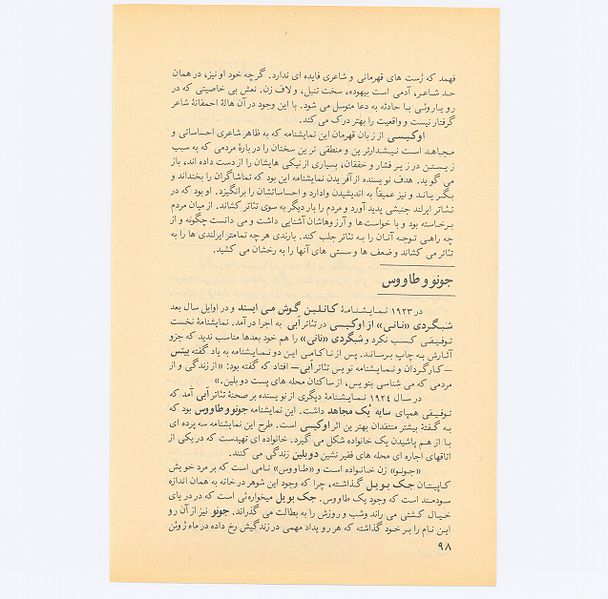 فهمد که ژست های قهرمانی و شاعری فایده ای ندارد. گرچه خود او نیز، در همان
حد شاعر، آدمی است بیهوده، سخت تنبل، و لاف زن. نعش بی خاصیتی که در
رویاروئی با حادثه به دعا متوسل می شود. با این وجود در آن هالهٔ احمقانهٔ شاعر
گرفتار نیست و واقعیت را بهتر درک می کند.
اوکیسی از زبان قهرمان این نمایشنامه که به ظاهر شاعری احساساتی و
مجاهد است نیشدارترین و منطقی ترین سخنان را در بارهٔ مردمی که به سبب
زیستن در زیر فشار و خفقان، بسیاری از نیکی هایشان را از دست داده اند، باز
می گوید. هدف نویسنده از آفریدن نمایشنامه این بود که تماشاگران را بخنداند و
بگریاند و نیز عمیقاً به اندیشیدن وادارد و احساساتشان را برانگیزد. او بود که در
تئاتر ایرلند جنبشی پدید آورد و مردم را بار دیگر به سوی تئاتر کشاند. از میان مردم
برخاسته بود و با خواست ها و آرزوهاشان آشنایی داشت و می دانست چگونه و از
چه راهی توجه آنان را به تئاتر جلب کند. بارندی هرچه تمامتر ایرلندی ها را به
تئاتر می کشاند و ضعف ها و سستی های آنها را به رخشان می کشید.
جونو و طاووس
در ۱۹۲۳ نمایشنامهٔ کاتلین گوش می ایستد و در اوایل سال بعد
شبگردی «نانی» از اوکیسی در تئاتر آبی به اجرا درآمد. نمایشنامهٔ نخست
توفیقی کسب نکرد و شبگردی «نانی» را هم خود بعدها مناسب ندید که جزو
آثارش به چاپ برساند. پس از ناکامی این دو نمایشنامه به یاد گفته ییتس
—کارگردان و نمایشنامه نویس تئاتر آبی— افتاد که گفته بود: «از زندگی و از
مردمی که می شناسی بنویس، از ساکنان محله های پست دوبلین.»
در سال ۱۹۲۴ نمایشنامهٔ دیگری از نویسنده بر صحنهٔ تئاتر آبی آمد که
توفیقی همپای سایه یک مجاهد داشت. این نمایشنامه جونو و طاووس بود که
به گفتهٔ بیشتر منتقدان بهترین اثر اوکیسی است. طرح این نمایشنامه سه پرده ای
با از هم پاشیدن یک خانواده شکل می گیرد. خانواده ای تهیدست که در یکی از
اتاقهای اجاره ای محله های فقیر نشین دوبلین زندگی می کنند.
«جونو» زن خانواده است و «طاووس» نامی است که بر مرد خویش
کاپیتان جک بویل گذاشته، چرا که وجود این شوهر در خانه به همان اندازه
سودمند است که وجود یک طاووس. جک بویل میخواره ئی است که در دریای
خیال کشتی می راند و شب و روزش را به بطالت می گذراند. جونو نیز از آن رو
این نام را بر خود گذاشته که هر رویداد مهمی در زندگیش رخ داده در ماه ژوئن
۹۸